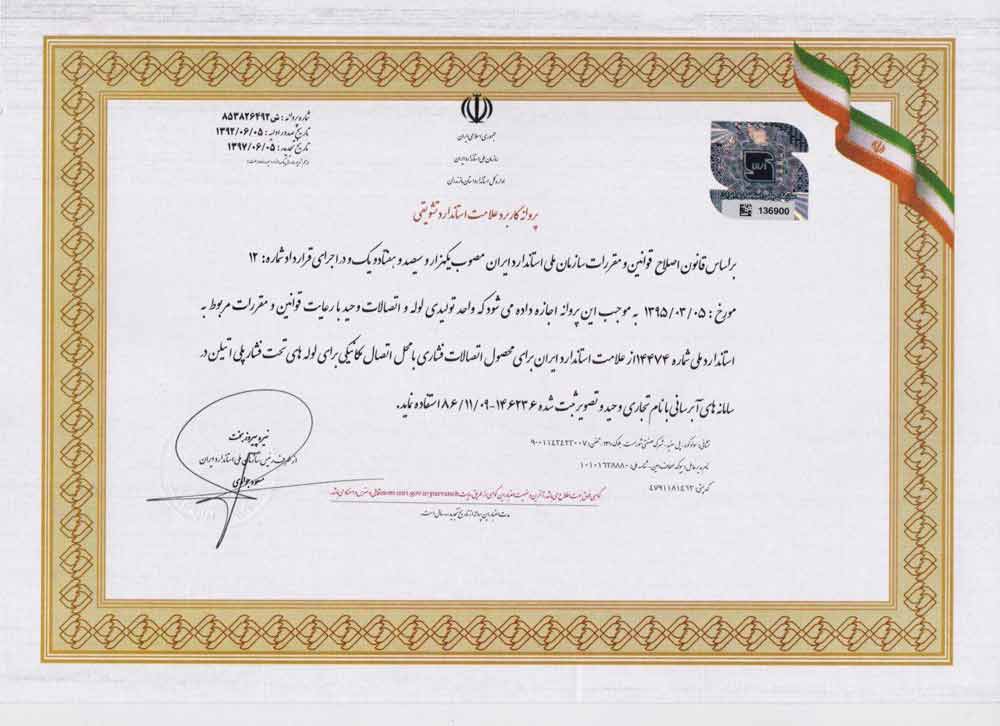 شماره پروانه : ش ۸۵۳۸۲۶۴۹۲
تاریخ صدور اولیه : ۱۳۹۲/۰۶/۰۵
تاریخ تجدید : ۱۳۹۷/۰۶/۰۵
جمهوری اسلامی ایران
سازمان ملی استاندارد ایران
اداره کل استاندارد استان مازندران
136900
پروانه کاربرد علامت استاندارد تشویقی
براساس قانون اصلاح قوانین و مقررات سازمان ملی استاندارد ایران مصوب یکهزار و سیصد و هفتاد و یک و در اجرای قرارداد شماره : ۱۲
مورخ : ۱۳۹۵/۰۳/۰۵ به موجب این پروانه اجازه داده می شود که واحد تولیدی لوله و اتصالات وحید با رعایت قوانین و مقررات مربوط به
استاندارد ملی شماره ۱۴۴۷۴ از علامت استاندارد ایران برای محصول اتصالات فشاری با محل اتصال مکانیکی برای لوله های تحت فشار پلی اتیلن در
سامانه های آبرسانی با نام تجاری وحید و تصویر ثبت شده ۱۴۶۲۳۶-۸۶/۱۱/۰۹ استفاده نماید.
نشانی : سوادکوه، پل سفید، شرک صنعتی شورمست،
شناسه ملی : ۱۰۱۰۱۶۲۸۸۸۰
کد پستی : ٤٧٩١١٨١٤٦٣
نیره پیروزبخت
از طرف رئیس سازمان ملی استاندارد ایران
مدت اعتبار این پروانه از تاریخ تجدید سه سال است.